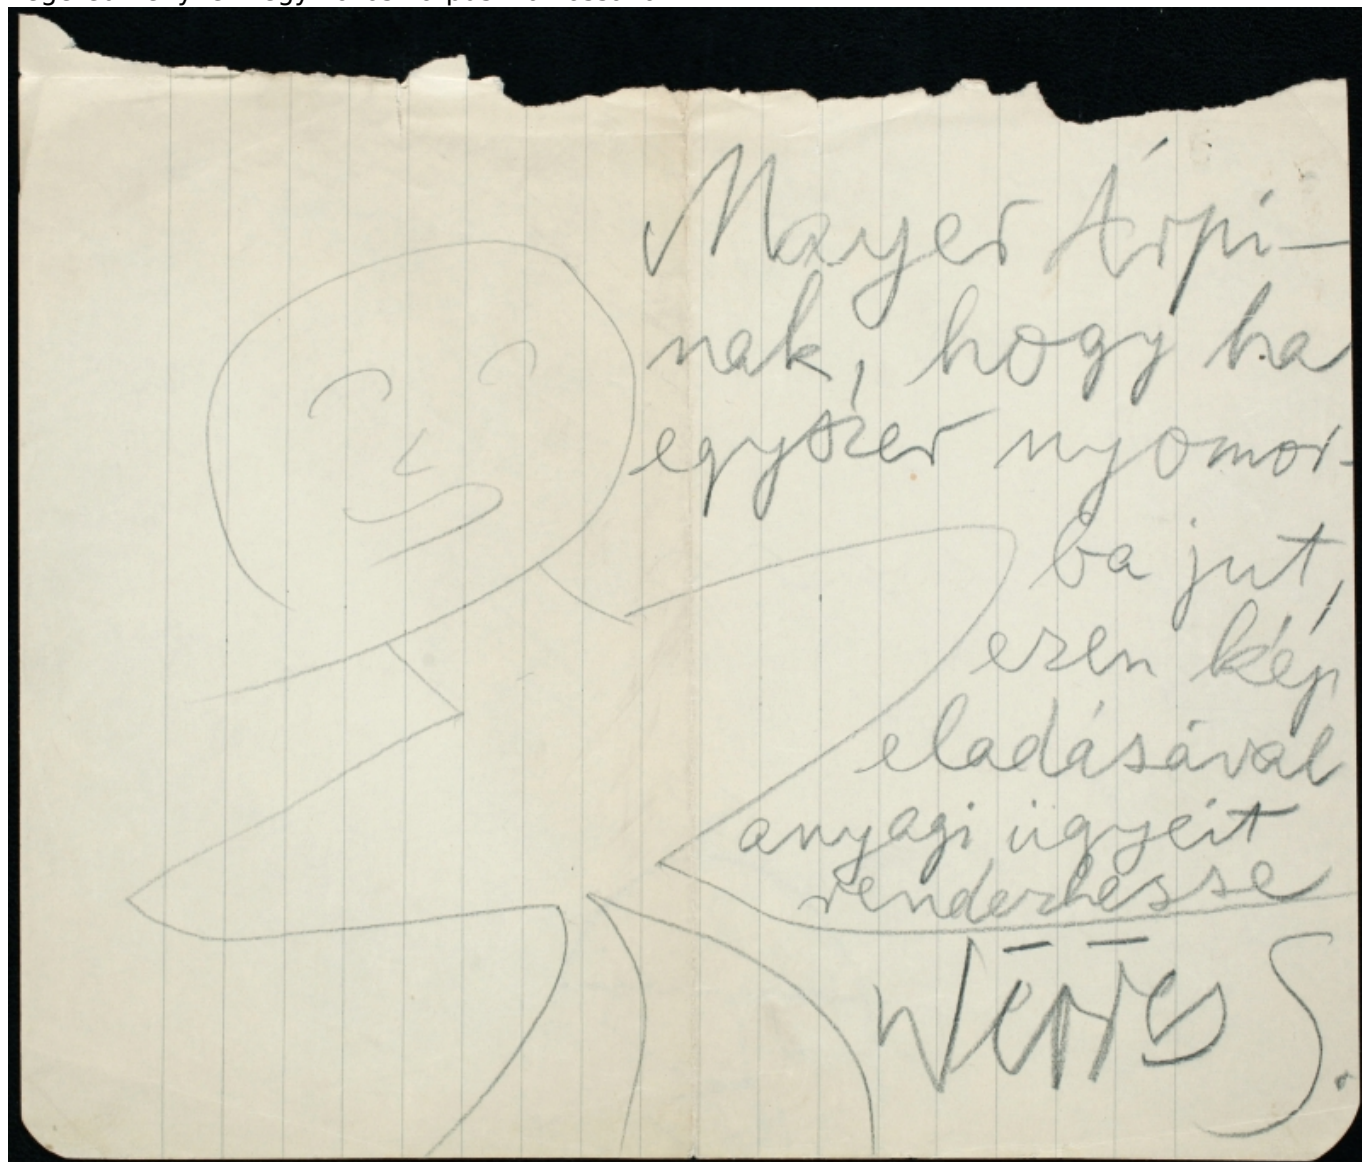 Mayer Árpi-
nak, hogy ha
egyszer nyomor-
ba jut,
ezen kép
eladásával
anyagi ügyeit
rendezhesse
Weöres S.